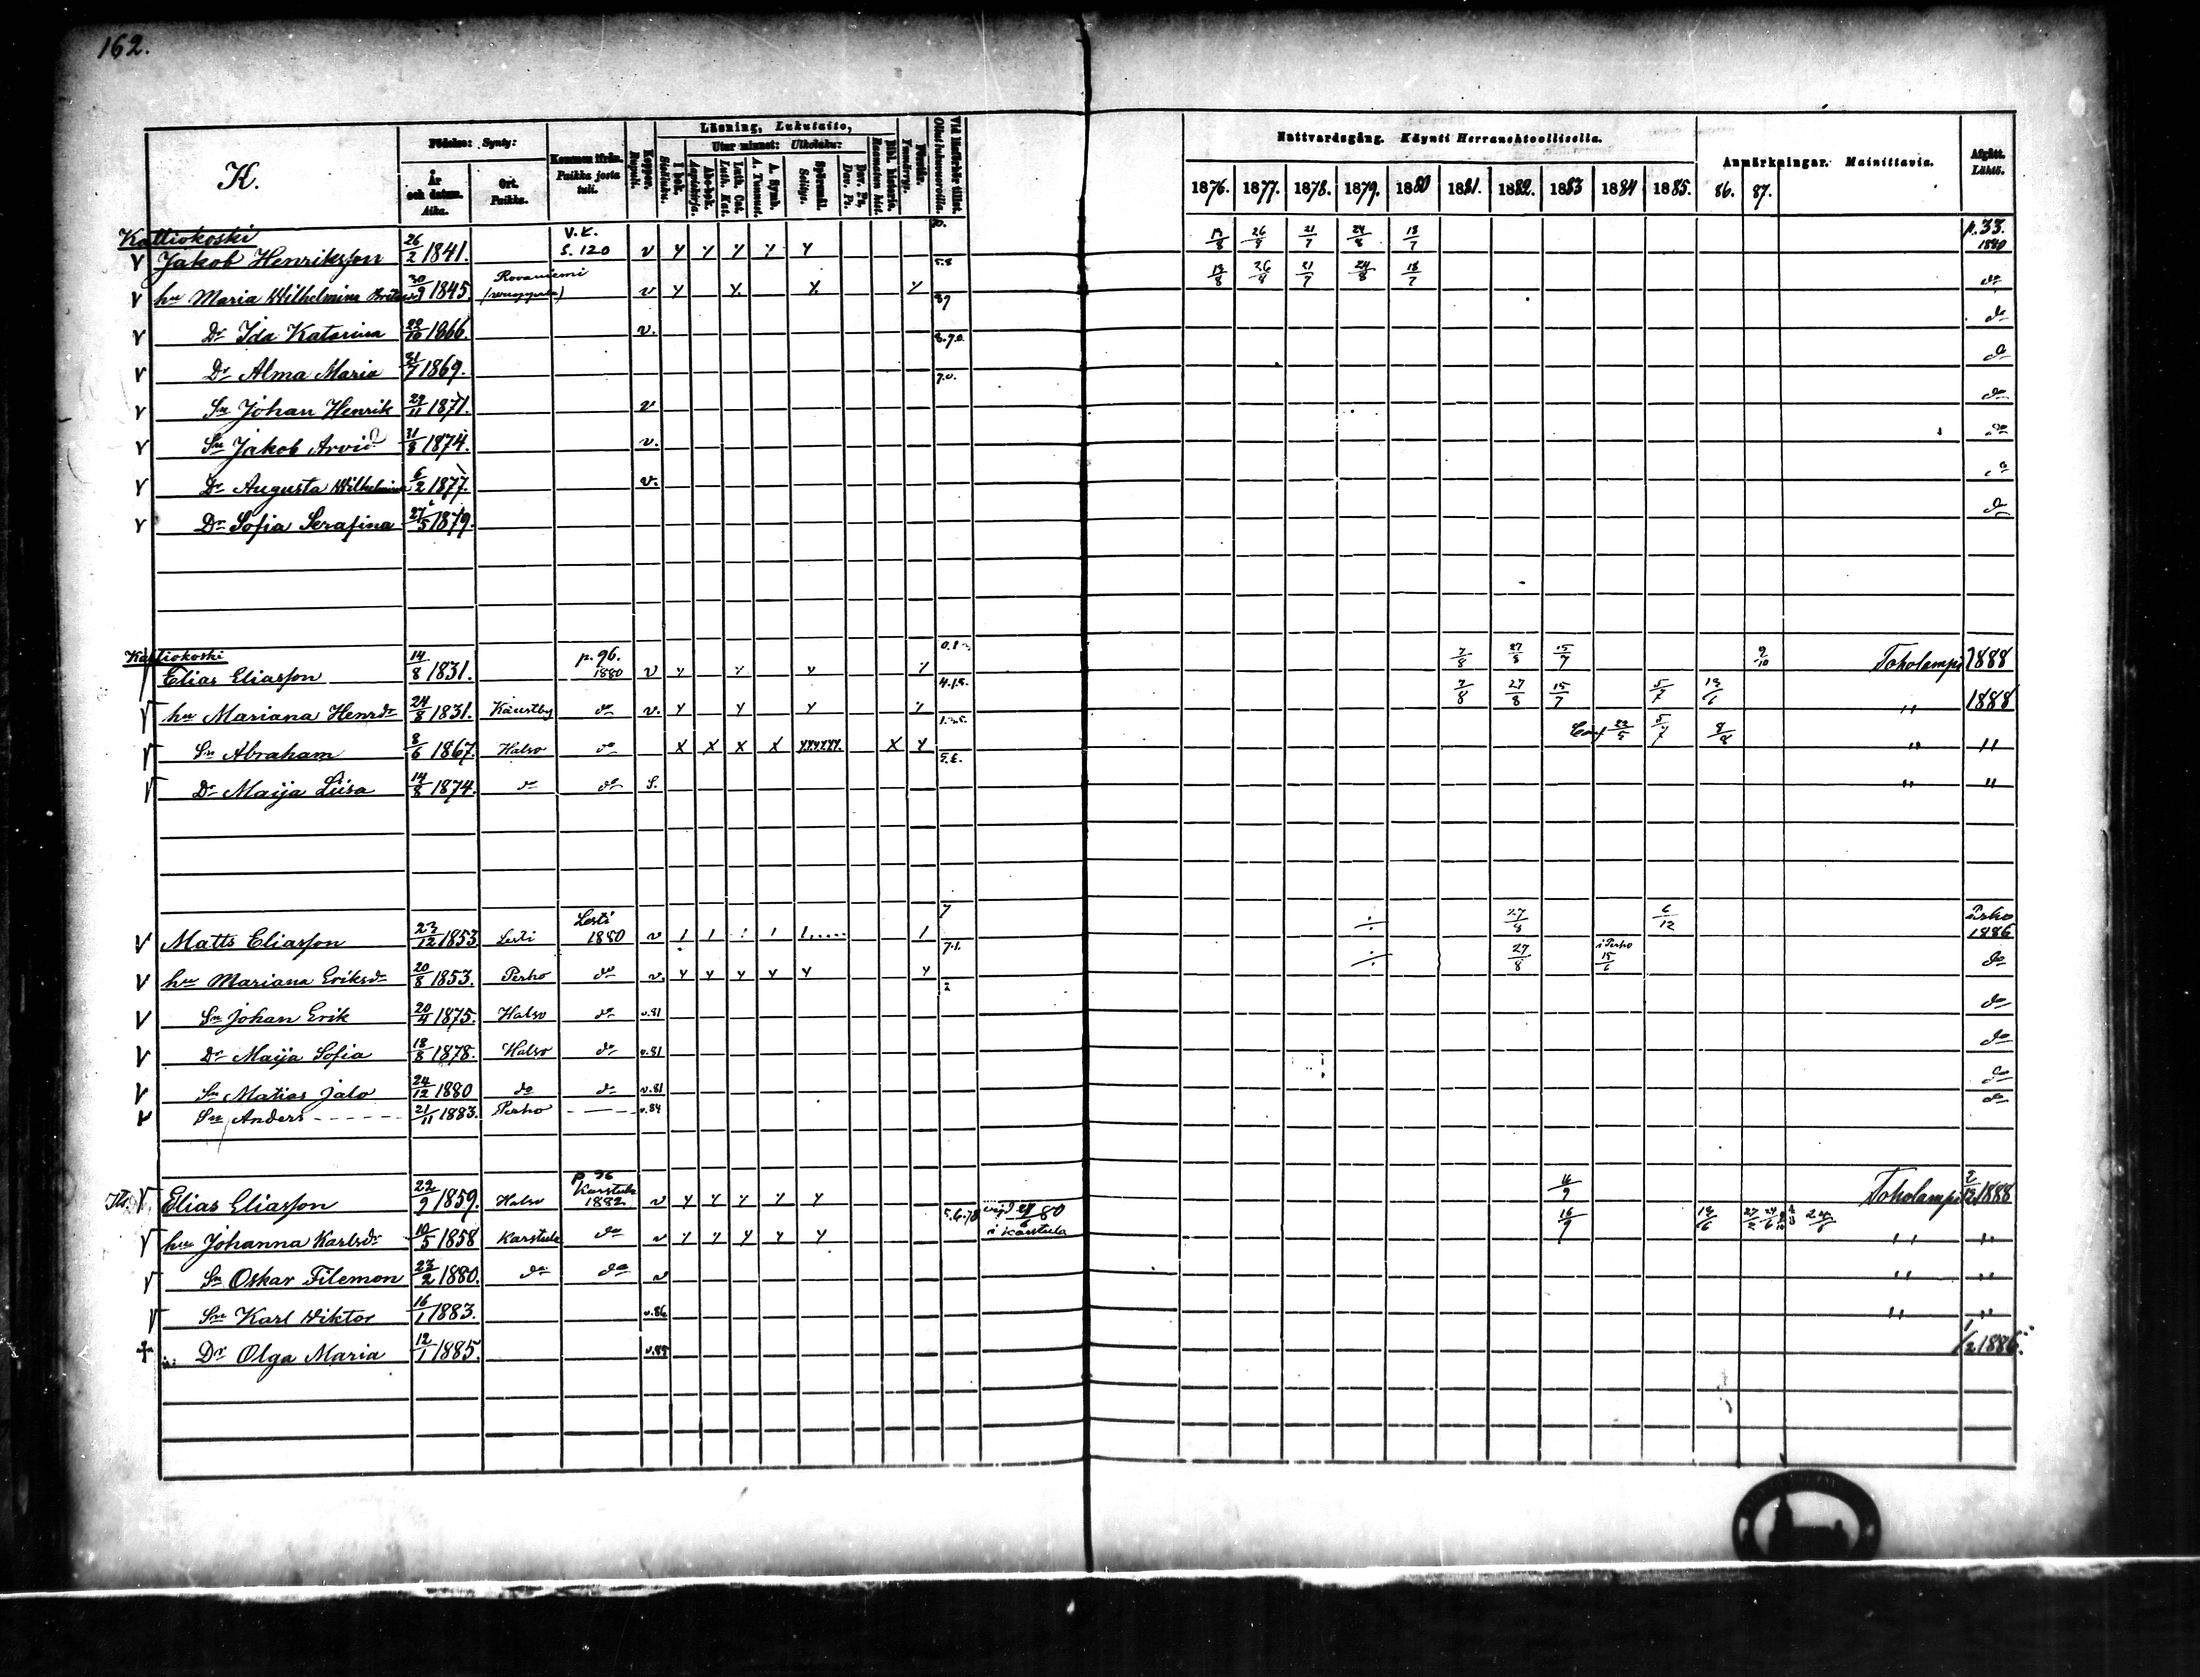 162.
K.
Födelse: Synty:
År och datum. Aika.
Ort. Paikka.
Kommen ifrån. Paikka josta tuli.
Koppor. Rupuli.
Läsning, Lukutaito,
I bok. Sisäluku.
Utur minnet: Ulkoluku:
Abc-bok. Aapiskirja.
Luth. Cat. Luth. Kat.
A. Symb. A. Tunnust.
Spörsmål. Selitys.
Dav. Ps. Dav. Ps.
Bibl. historia. Raamatun hist.
Förstår. Ymmärrys.
Vid läsförhör tillst. Ollut lukuvuoroilla.
Nattvardsgång. Käynti Herranehtoollisella.
1876. 1877. 1878. 1879. 1880 1881. 1882. 1883 1884 1885. 86. 87.
Anmärkningar. Mainittavia.
Afgått. Lähtö.
Kalliokoski
v Jakob Henriksson 26/2 1841. V.K. S. 120 v y y y y y 26/8 21/7 24/8 18/7 p. 33. 1880
v hu Maria Wilhelmina 30/9 1845. Rovaniemi v y y y y 21/7 24/8 18/7 do
v Dr Ida Katarina 1866. v. do
v Dr Alma Maria 31/7 1869. do
v Sn Johan Henrik 29/11 1871. v do
v Sn Jakob Arvid 31/8 1874. v. do
v Dr Augusta Wilhelmina 6/2 1877. v.
v Dr Sofia Serafina 27/5 1879. do
Kalliokoski
Elias Eliasson 14/8 1831. p. 96. 1880 v y y y y 7/8 27/8 15/7 9/10 Toholampi 1888
hu Mariana Henrdr 24/8 1831. Kaustby do v. y y y y 7/8 27/8 15/7 5/7 13/6 " 1888
Sn Abraham 8/6 1867. Halso do x x x x x y 5/7 8/8 " "
Dr Maija Liisa 14/8 1874. do do S. " "
v Matts Eliasson 23/12 1853 Lesti Lesti 1880 v 27/8 6/12 Perho 1886
v hu Mariana Eriksdr 20/8 1853. Perho do v. y y y y y y 27/8 i Perho 15/6 do
v Sn Johan Erik 20/4 1875. Halso do v.81 do
v Dr Maija Sofia 18/8 1878. Halso do v.81 do
v Sn Matias Jalo 24/12 1880 do do v.81 do
v Sn Anders 21/11 1883. Perho v.84 do
Elias Eliasson 22/9 1859. Halso p. 96 Karstula 1882. v y y y y y 16/9 Toholampi 1888
hu Johanna Karlsdr 10/5 1858 Karstula do v y y y y y 5.6.78 vigd 80 i Karstula 16/9 13/6 " "
Sn Oskar Filemon 23/2 1880. do do v " "
Sn Karl Wiktor 16/1 1883. v.86 " "
Dr Olga Maria 12/1 1885. 1/2 1886.